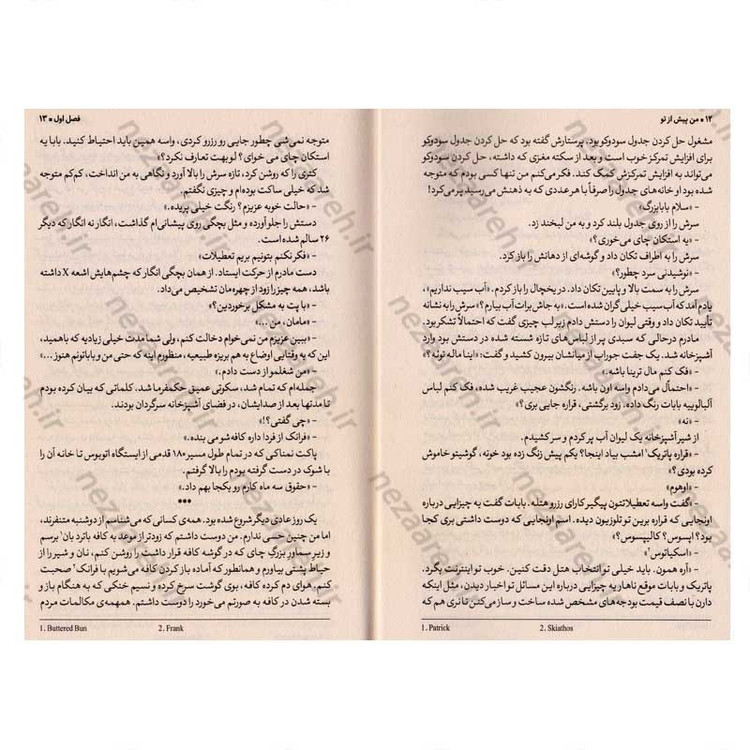 ۱۲ * من پیش از تو
مشغول حل کردن جدول سودوکو بود. پرستارش گفته بود که حل کردن جدول سودوکو
برای افزایش تمرکز خوب است و بعد از سکته مغزی که داشته، حل کردن سودوکو
می‌تواند به افزایش تمرکزش کمک کند. فکر می‌کنم من تنها کسی بودم که متوجه
شده بود او خانه‌های جدول را صرفاً با هر عددی که به ذهنش می‌رسید پر می‌کرد!
- «سلام بابابزرگ»
سرش را از روی جدول بلند کرد و به من لبخند زد.
- «یه استکان چای می‌خوری؟»
سرش را به اطراف تکان داد و گوشه‌ای از دهانش را باز کرد.
- «نوشیدنی سرد چطور؟»
سرش را به سمت بالا و پایین تکان داد. در یخچال را باز کردم. «آب سیب نداریم»،
یادم آمد که آب سیب خیلی گران شده است. «به جاش برات آب بیارم؟» سرش را به نشانه
تأیید تکان داد و وقتی لیوان را دستش دادم زیر لب چیزی گفت که احتمالاً تشکر بود.
مادرم درحالی‌که سبدی پر از لباس‌های تازه شسته شده در دستش بود وارد
آشپزخانه شد. یک جفت جوراب از میانشان بیرون کشید و گفت: «اینا ماله توئه؟»
- «فک کنم مال ترینا باشه.»
- «احتمال می‌دادم واسه اون باشه. رنگشون عجیب غریب شده، فک کنم لباس
آلبالوییه بابات رنگ داده. زود برگشتی، قراره جایی بری؟»
- «نه»
از شیر آشپزخانه یک لیوان آب پر کردم و سر کشیدم.
- «قراره پاتریک۱ امشب بیاد اینجا؟ یکم پیش زنگ زده بود خونه، گوشیتو خاموش
کرده بودی؟»
- «اوهوم»
- «گفت واسه تعطیلاتتون پیگیر کارای رزرو هتله. بابات گفت یه چیزایی درباره
اونجایی که قراره برین تو تلوزیون دیده. اسم اونجایی که دوست داشتی بری کجا
بود؟ ایسوس؟ کالیپسوس؟»
- «اسکیاتوس۲»
- «آره همون. باید خیلی تو انتخاب هتل دقت کنین. خوب تو اینترنت بگرد.
پاتریک و بابات موقع ناهار یه چیزایی درباره این مسائل تو اخبار دیدن، مثل اینکه
دارن با نصف قیمت بودجه‌های مشخص شده ساخت و ساز می‌کنن تا نری هم که
1. Patrick 2. Skiathos
فصل اول * ۱۳
متوجه نمی‌شی چطور جایی رو رزرو کردی، واسه همین باید احتیاط کنید. بابا یه
استکان چای می‌خوای؟ لو بهت تعارف نکرد؟»
کتری را که روشن کرد، تازه سرش را بالا آورد و نگاهی به من انداخت، کم‌کم متوجه
شد که خیلی ساکت بوده‌ام و چیزی نگفتم.
- «حالت خوبه عزیزم؟ رنگت خیلی پریده.»
دستش را جلو آورده و مثل بچگی روی پیشانی‌ام گذاشت، انگار نه انگار که دیگر
۲۶ سالم شده است.
- «فکر نکنم بتونیم بریم تعطیلات»
دست مادرم از حرکت ایستاد. از همان بچگی انگار که چشم‌هایش اشعه X داشته
باشد، همه چیز را زود از چهره‌مان تشخیص می‌داد.
- «با پت به مشکل برخوردین؟»
- «مامان، من ...»
- «ببین عزیزم من نمی‌خوام دخالت کنم، ولی شما مدت خیلی زیادیه که باهمید،
این که یه وقتایی اوضاع به هم بریزه طبیعیه، منظورم اینه که حتی من و باباتونم هنوز ...»
- «من شغلمو از دست دادم.»
جمله‌ام که تمام شد، سکوتی عمیق حکمفرما شد. کلماتی که بیان کرده بودم
تا مدتها بعد از صدایشان، در فضای آشپزخانه سرگردان بودند.
- «چی گفتی؟!»
- «فرانک از فردا داره کافه‌شو می‌بنده.»
پاکت نمناکی که در تمام طول مسیر ۱۸۰ قدمی از ایستگاه اتوبوس تا خانه آن را
با شوک در دست گرفته بودم را بالا گرفتم.
- «حقوق سه ماه کارم رو یکجا بهم داد.»
***
یک روز عادی دیگر شروع شده بود. همه‌ی کسانی که می‌شناسم از دوشنبه متنفرند،
اما من چنین حسی ندارم. من دوست داشتم که زودتر از موعد به کافه باترد بان۱ برسم
و زیر سماور بزرگ چای که در گوشه کافه قرار داشت را روشن کنم، نان و شیر را از
حیاط پشتی بیاورم و همانطور که آماده باز کردن کافه می‌شویم با فرانک۲ صحبت
کنم. من هوای دم کرده کافه، بوی گوشت سرخ کرده و نسیم خنکی که به هنگام باز و
بسته شدن در کافه به صورتم می‌خورد را دوست داشتم. همهمه‌ی مکالمات مردم
1. Buttered Bun 2. Frank
nezaareh.ir